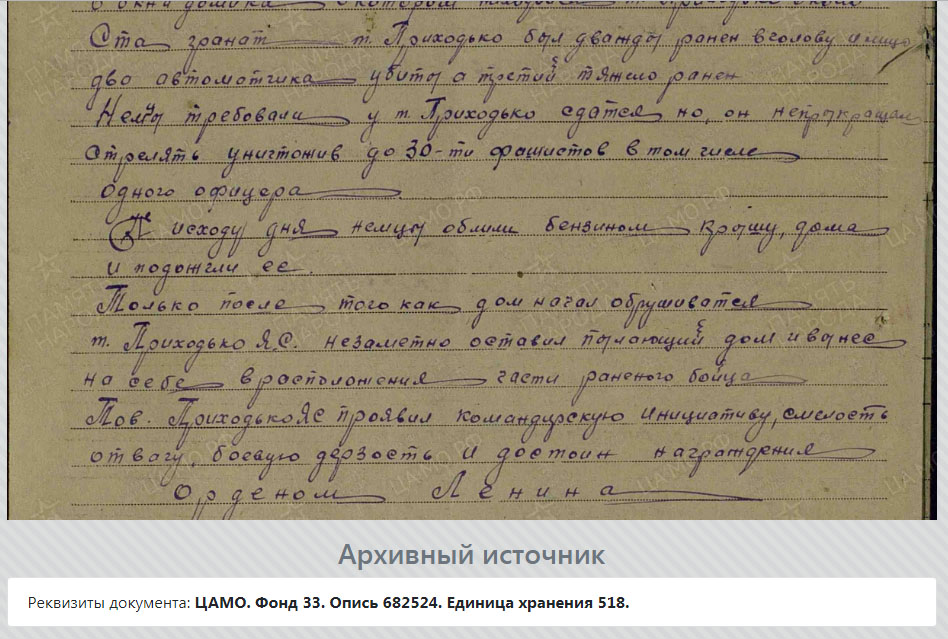 в окна домика в котором находился т. Приходько около
Ста гранат т. Приходько был дважды ранен в голову и лицо
два автоматчика убиты а третий тяжело ранен
Немцы требовали у т. Приходько сдатся но, он непрекращал
стрелять уничтожив до 30-ти фашистов в том числе
одного офицера
К исходу дня немцы облили бензином крышу, дома
и подожгли ее.
Только после того как дом начал обрушиватся
т. Приходько Я.С. незаметно оставил пылающий дом и вынес
на себе в расположения части раненого бойца
Тов. Приходько ЯС проявил командирскую инициативу, смелость
отвагу, боевую дерзость и достоин награждения
Орденом Ленина
Архивный источник
Реквизиты документа: ЦАМО. Фонд 33. Опись 682524. Единица хранения 518.